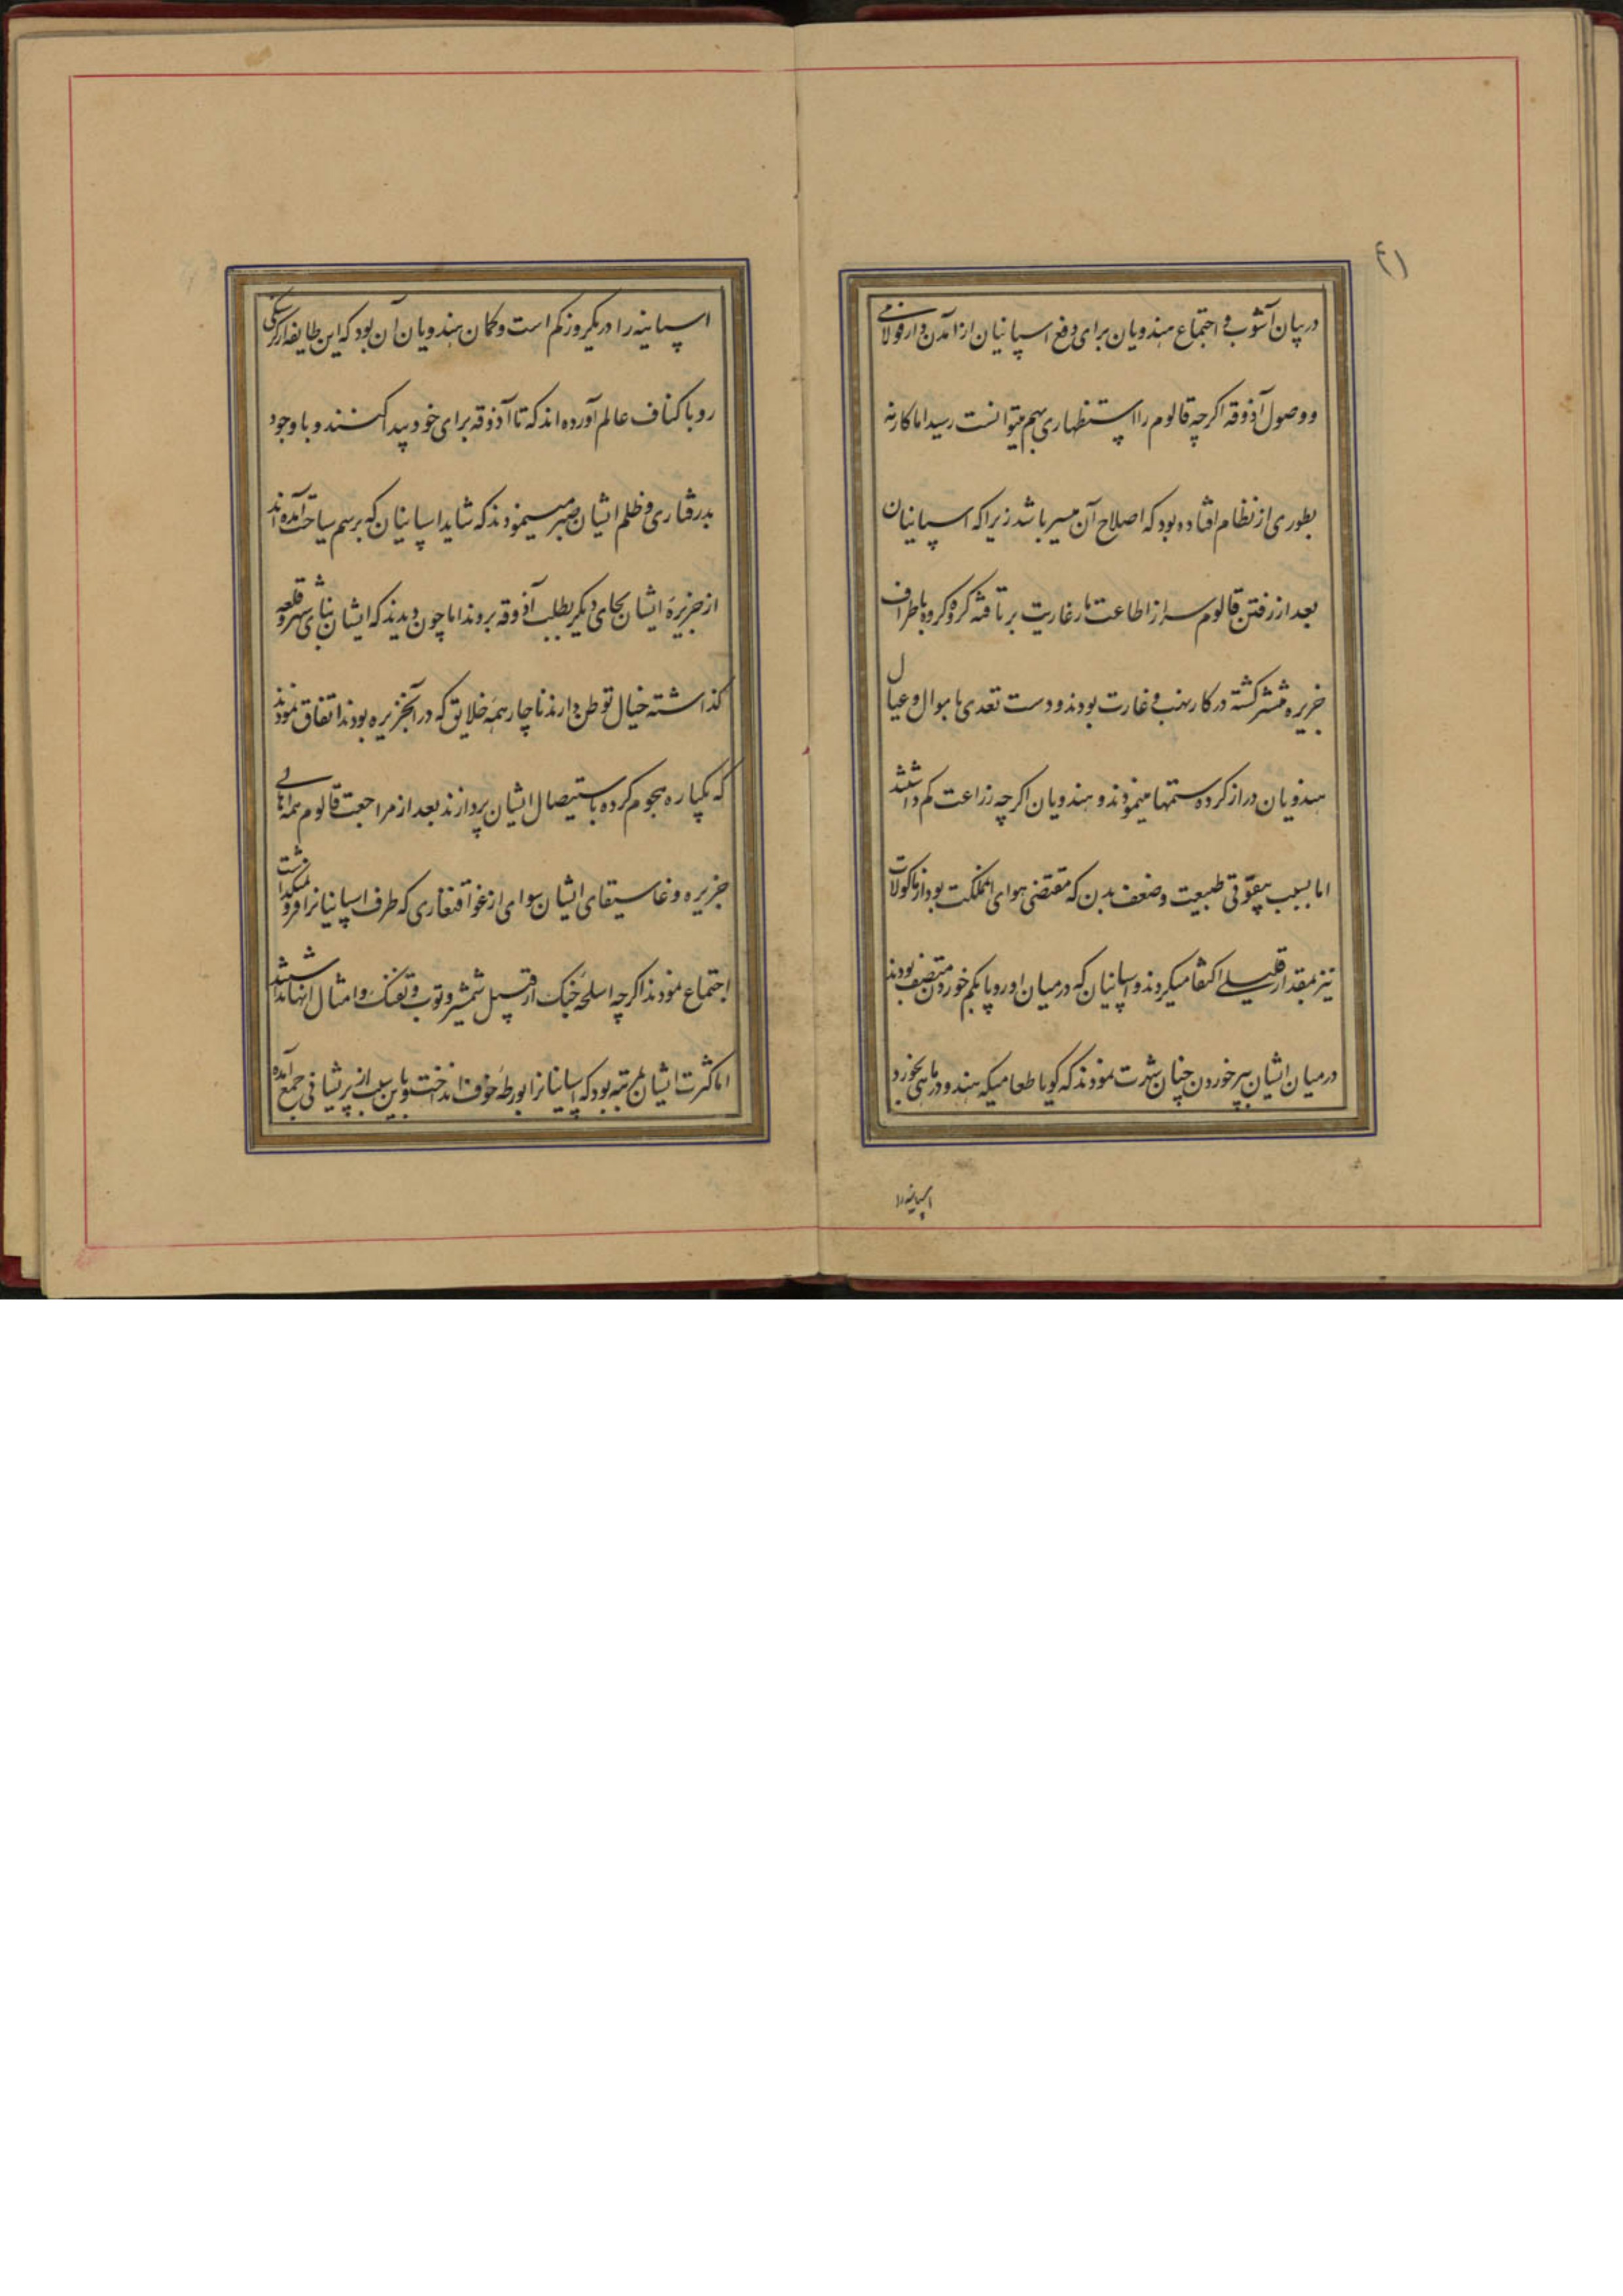 ۴۱
در بیان آشوب و اجتماع هندویان برای دفع اسپانیان از آمدن دارقولامی
و وصول آذوقه اگرچه قالوم را استظهاری بهم میتوانست رسید اما کار نه
بطوری از نظام افتاده بود که اصلاح آن میسر باشد زیرا که اسپانیان
بعد از رفتن قالوم سر از اطاعت مارغاریت برتافته گروه گروه باطراف
جزیره منتشر گشته در کار نهب و غارت بودند و دست تعدی باموال و عیال
هندویان دراز کرده ستمها مینمودند و هندویان اگرچه زراعت کم داشتند
اما بسبب بیقوتی طبیعت و ضعف بدن که مقتضی هوای انمملکت بود از ماکولات
نیز بمقدار قلیلی اکتفا میکردند و اسپانیان که در میان اوروپا بکم خوردن متصف بودند
در میان ایشان بپر خوردن چنان شهرت نمودند که گویا طعامیکه هندو در ماهی بخورد
اسپانیه را
اسپانیه را در یکروز کم است و گمان هندویان آن بود که این طایفه از گرسنگی
رو باکناف عالم آورده اند که تا آذوقه برای خود پیدا کنند و با وجود
بدرفتاری و ظلم ایشان صبر مینمودند که شاید اسپانیان که برسم سیاحت آمده اند
از جزیرهٔ ایشان بجای دیگر بطلب آذوقه بروند اما چون دیدند که ایشان بنای شهر و قلعه
گذاشته خیال توطن دارند ناچار همه خلایق که در آنجزیره بودند اتفاق نمودند
که یکباره هجوم کرده باستیصال ایشان پردازند بعد از مراجعت قالوم همه اهالی
جزیره و غاسیقای ایشان سوای از غواقنغاری که طرف اسپانیانرا فرو نمیگذاشت
اجتماع نمودند اگرچه اسلحهٔ جنگ از قبیل شمشیر و توپ و تفنگ و امثال اینها نداشتند
اما کثرت ایشان بمرتبه بود که اسپانیانرا بورطهٔ خوف انداخت و باین سبب از پریشانی جمع آمده